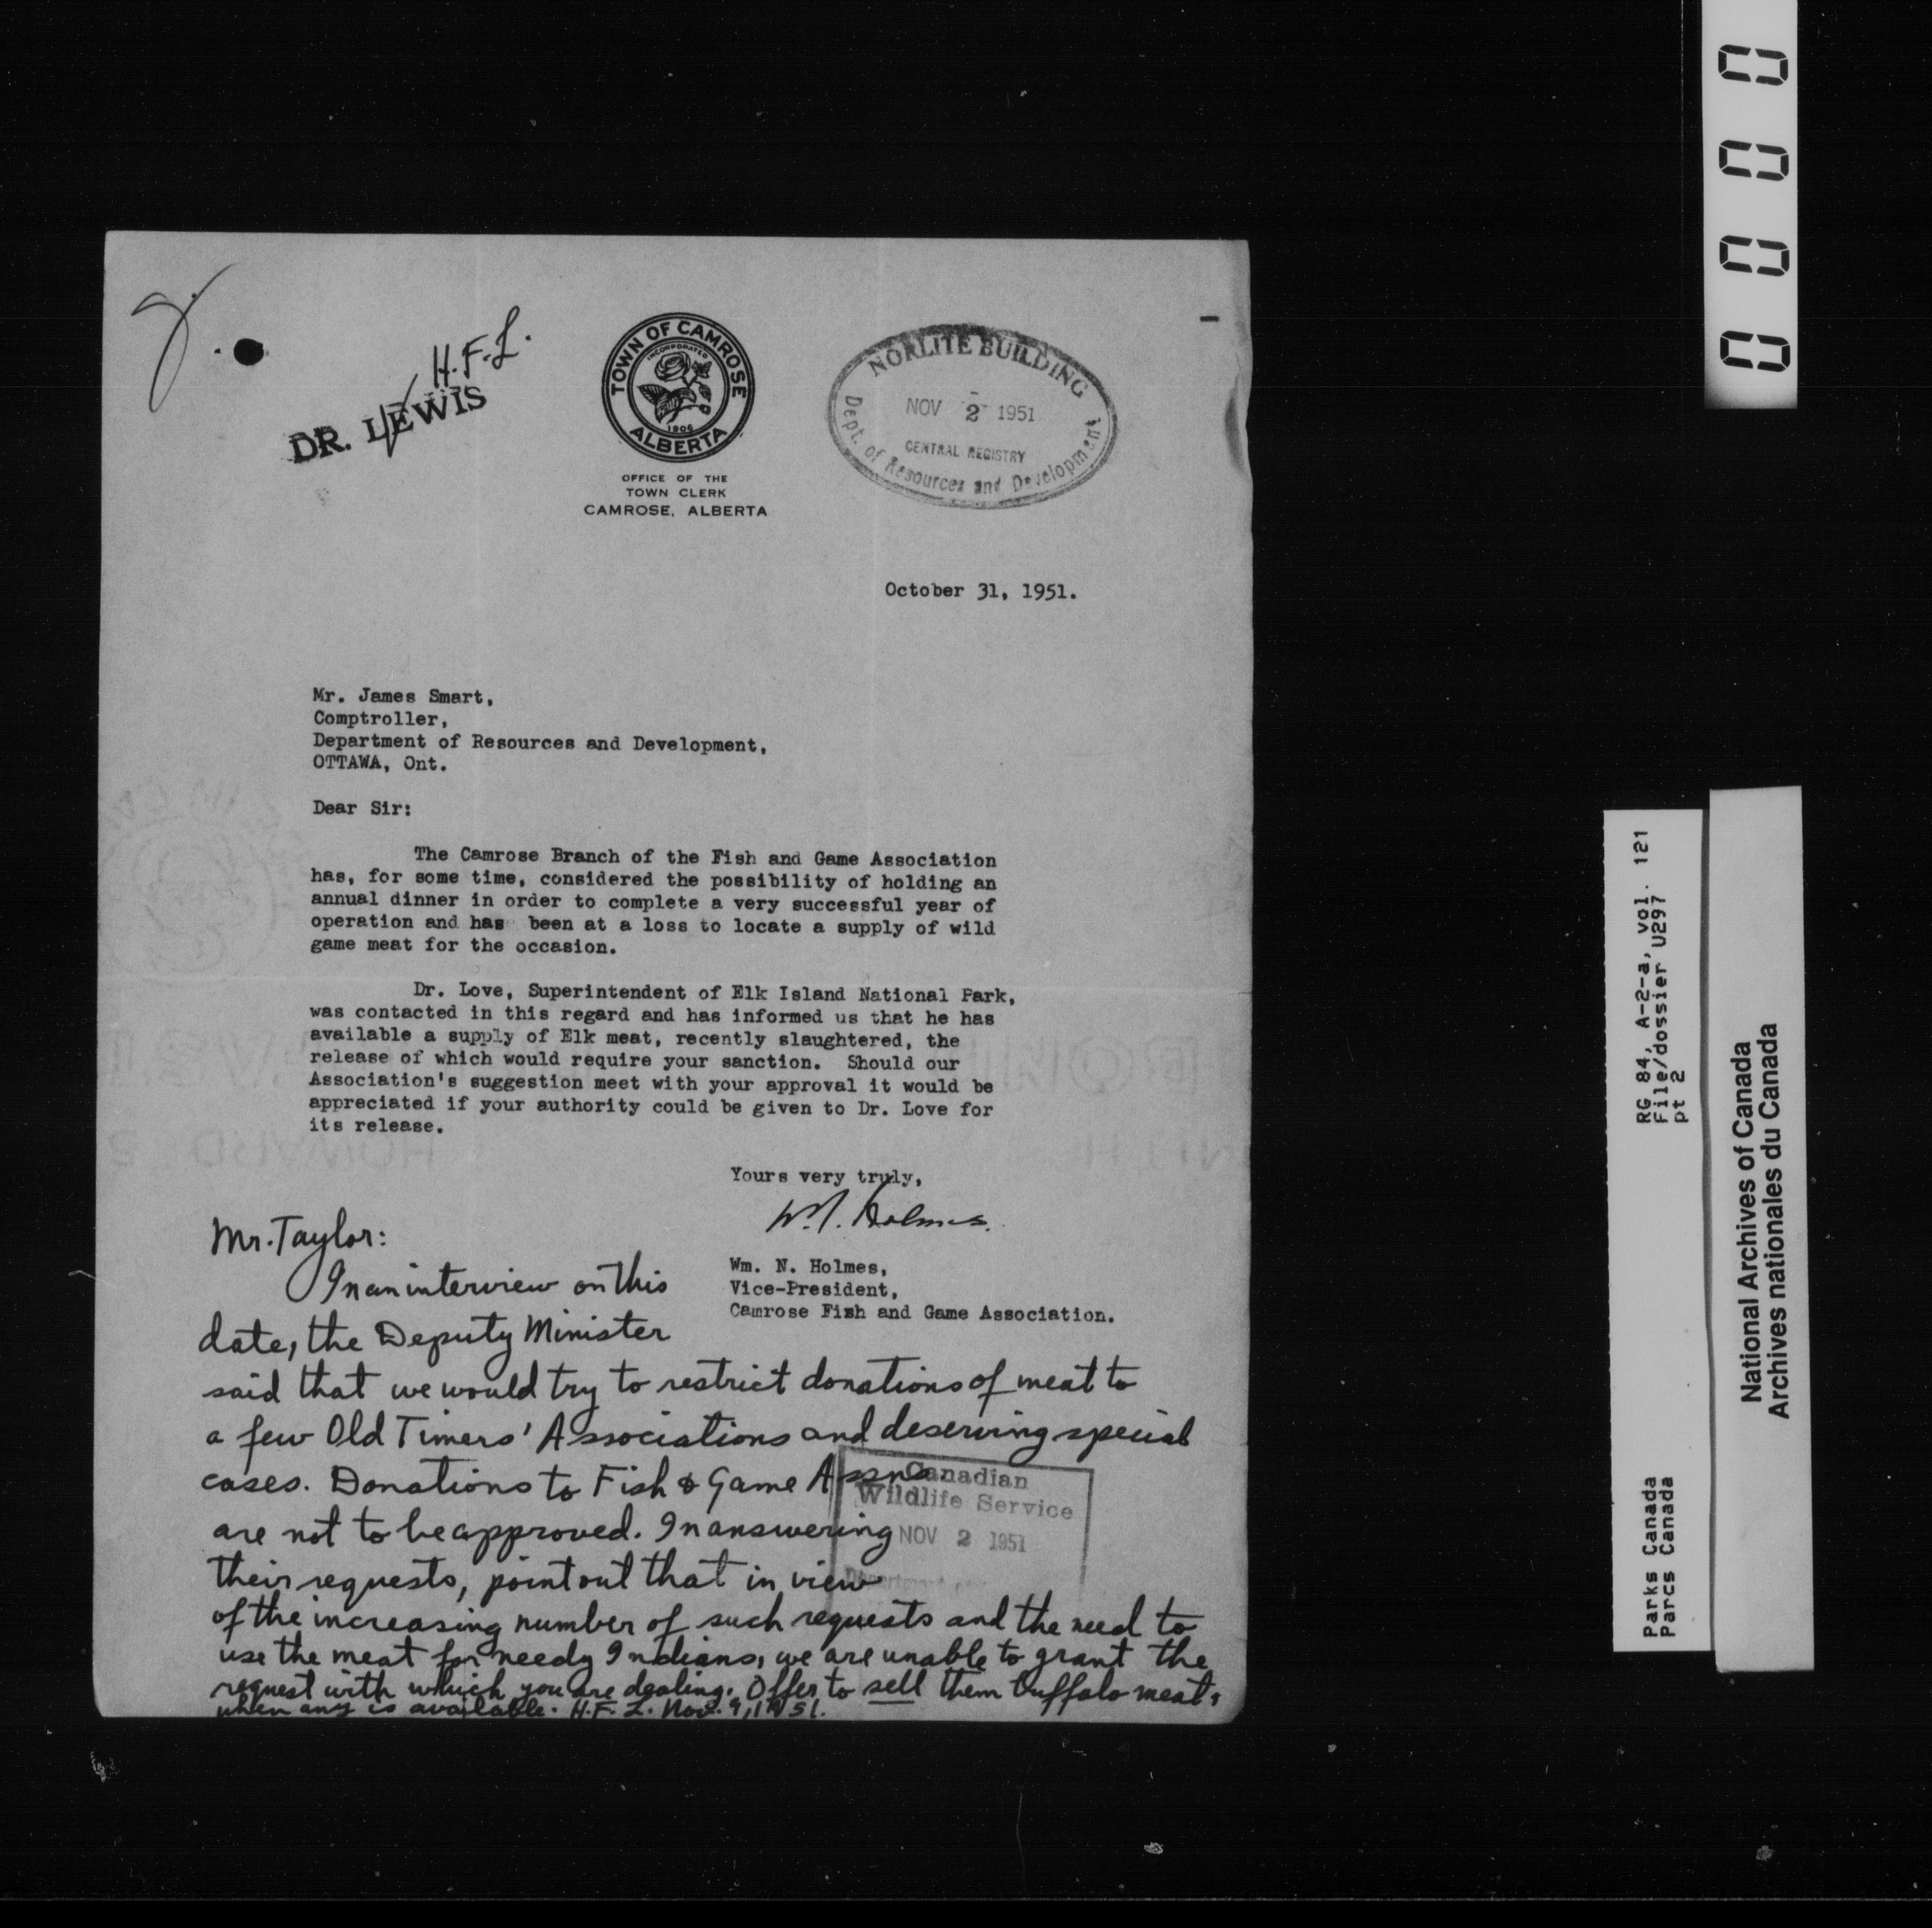 H.F.L.
DR. LEWIS
TOWN OF CAMROSE
INCORPORATED
1906
ALBERTA
OFFICE OF THE
TOWN CLERK
CAMROSE, ALBERTA
NORLITE BUILDING
NOV 2 1951
CENTRAL REGISTRY
Dept. of Resources and Development
October 31, 1951.
Mr. James Smart,
Comptroller,
Department of Resources and Development,
OTTAWA, Ont.
Dear Sir:
The Camrose Branch of the Fish and Game Association
has, for some time, considered the possibility of holding an
annual dinner in order to complete a very successful year of
operation and has been at a loss to locate a supply of wild
game meat for the occasion.
Dr. Love, Superintendent of Elk Island National Park,
was contacted in this regard and has informed us that he has
available a supply of Elk meat, recently slaughtered, the
release of which would require your sanction. Should our
Association's suggestion meet with your approval it would be
appreciated if your authority could be given to Dr. Love for
its release.
Yours very truly,
W.N. Holmes.
Wm. N. Holmes,
Vice-President,
Camrose Fish and Game Association.
Mr. Taylor:
In an interview on this
date, the Deputy Minister
said that we would try to restrict donations of meat to
a few Old Timers' Associations and deserving special
cases. Donations to Fish & Game Assns.
are not to be approved. In answering
their requests, point out that in view
of the increasing number of such requests and the need to
use the meat for needy Indians, we are unable to grant the
request with which you are dealing. Offer to sell them buffalo meat,
when any is available. H.F.L. Nov. 9, 1951.
Canadian
Wildlife Service
NOV 2 1951
Department of
0000
RG 84, A-2-a, vol. 121
File/dossier U297
pt 2
Parks Canada
Parcs Canada
National Archives of Canada
Archives nationales du Canada